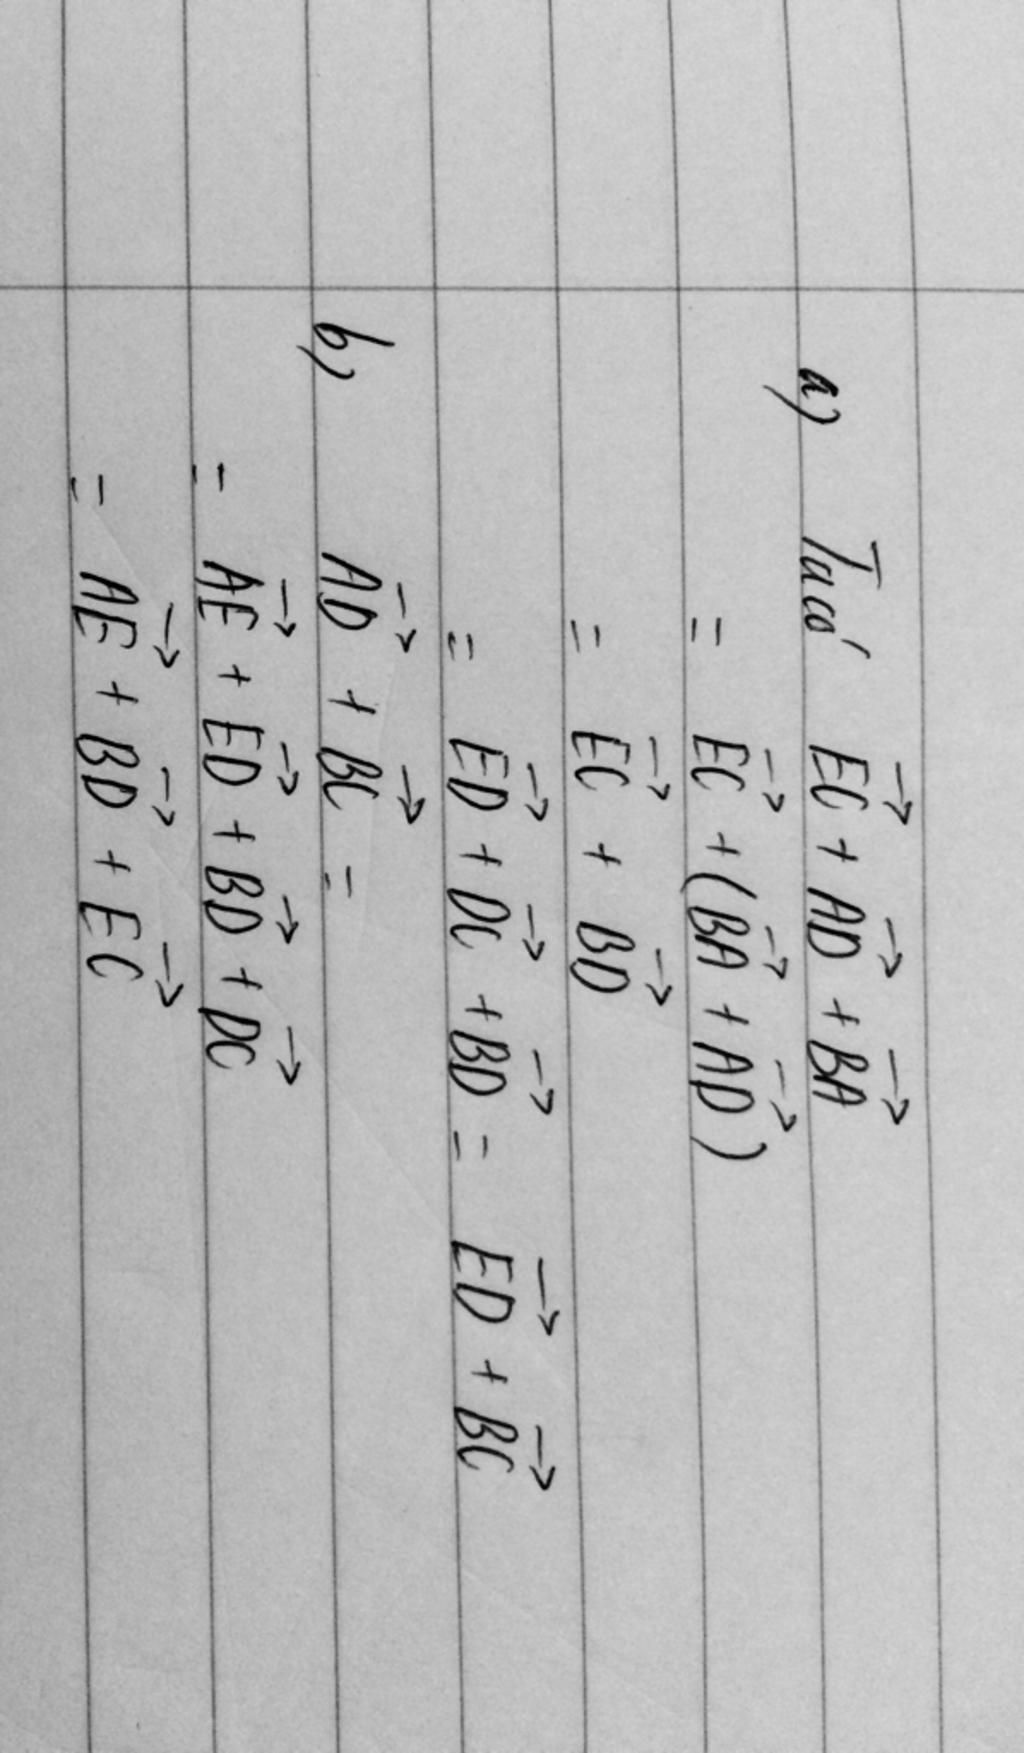 a) Ta có $\overrightarrow{EC} + \overrightarrow{AD} + \overrightarrow{BA}$
$= \overrightarrow{EC} + (\overrightarrow{BA} + \overrightarrow{AD})$
$= \overrightarrow{EC} + \overrightarrow{BD}$
$= \overrightarrow{ED} + \overrightarrow{DC} + \overrightarrow{BD} = \overrightarrow{ED} + \overrightarrow{BC}$
b) $\overrightarrow{AD} + \overrightarrow{BC} =$
$= \overrightarrow{AE} + \overrightarrow{ED} + \overrightarrow{BD} + \overrightarrow{DC}$
$= \overrightarrow{AE} + \overrightarrow{BD} + \overrightarrow{EC}$